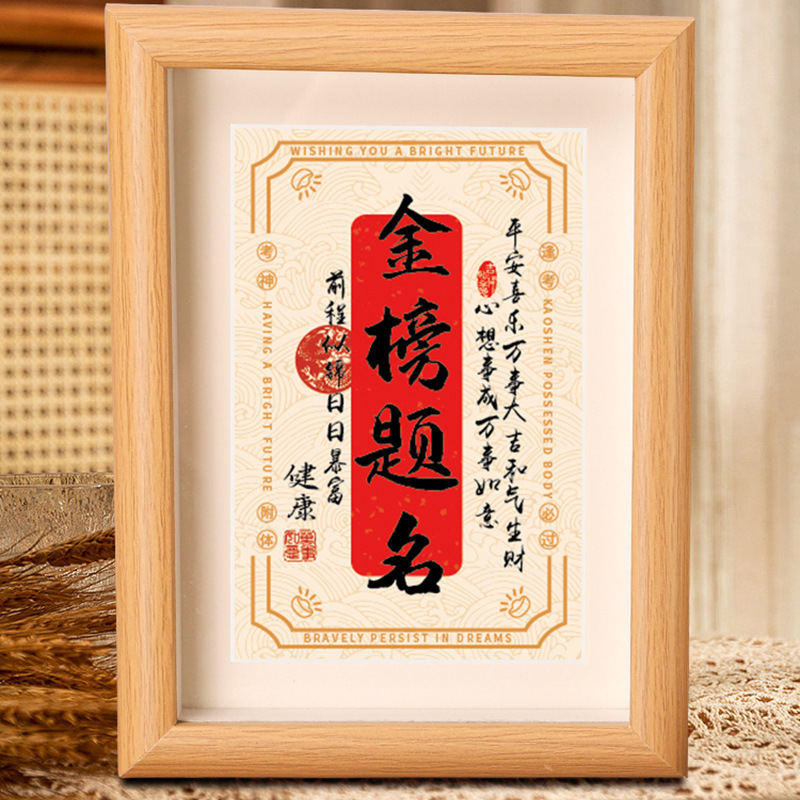 WISHING YOU A BRIGHT FUTURE
平安喜乐万事大吉和气生财
心想事成万事如意
金榜题名
前程似锦日日暴富
健康
考神
HAVING A BRIGHT FUTURE
附体
逢考
KAOSHEN POSSESSED BODY
必过
BRAVELY PERSIST IN DREAMS